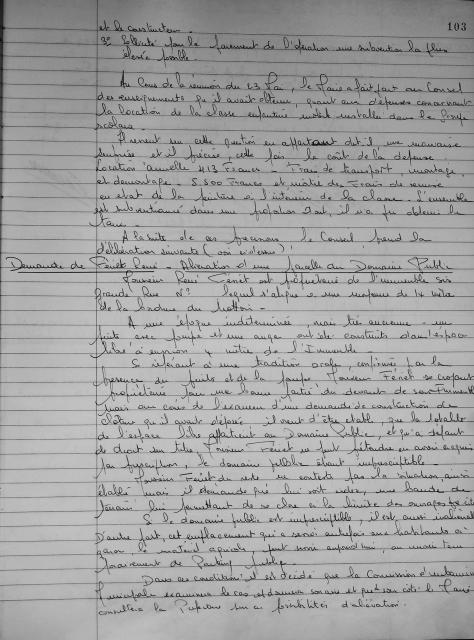 103
et le constructeur.
3° Sollicite pour le paiement de l'opération une subvention la plus
élevée possible.
Au Cours de la réunion du 23 Mai, le Maire a fait part au Conseil
des renseignements qu'il avait obtenus, quant aux dépenses concernant
la location de la classe enfantine installée dans le Groupe
scolaire.
Il revient sur cette question en apportant dit-il une mauvaise
surprise et il précise cette fois le coût de la dépense.
Location annuelle 413 Francs - Frais de transport, montage,
et démontage - 5.500 Francs et moitié des Frais de remise
en état de la peinture à l'intérieur de la classe. L'ensemble
est subventionné dans une proportion dont il n'a pu obtenir le
taux.
A la suite de ces précisions, le Conseil prend la
délibération suivante (voir ci-dessus)
Demande de Fénét René - Aliénation d'une parcelle du Domaine Public
Monsieur René Fénét est propriétaire de l'immeuble sis
Grande Rue N° lequel s'aligne à une moyenne de 14 mètres
de la bordure du trottoir.
A une époque indéterminée, mais très ancienne un
puits avec pompe et une auge ont été construits dans l'espace
libre à environ 4 mètres de l'Immeuble.
Se référant à une tradition orale, confirmée par la
présence du puits et de la pompe Monsieur Fénét se croyait
propriétaire sur une bonne partie du devant de son Immeuble
mais au cours de l'examen d'une demande de construction de
clôture qu'il avait déposée il vient d'être établi que la totalité
de l'espace libre appartient au Domaine Public, et qu'à défaut
de droit sur titre Monsieur Fénét ne peut prétendre en avoir acquis
par prescription, le domaine public étant imprescriptible.
Monsieur Fénét du reste ne conteste pas la situation ainsi
établie mais il demande que lui soit cédée, une bande de
terrain lui permettant de se clore à la limite des ouvrages
Si le domaine public est imprescriptible, il est aussi inaliénable
D'autre part, cet emplacement qui a servi autrefois aux habitants à
garer le matériel agricole, peut servir aujourd'hui, au moins
de Parking public.
Dans ces conditions il est décidé que la Commission d'urbanisme
Municipale examinera le cas et donnera son avis et que de son côté le Maire
consultera la Préfecture sur ces possibilités d'aliénation.